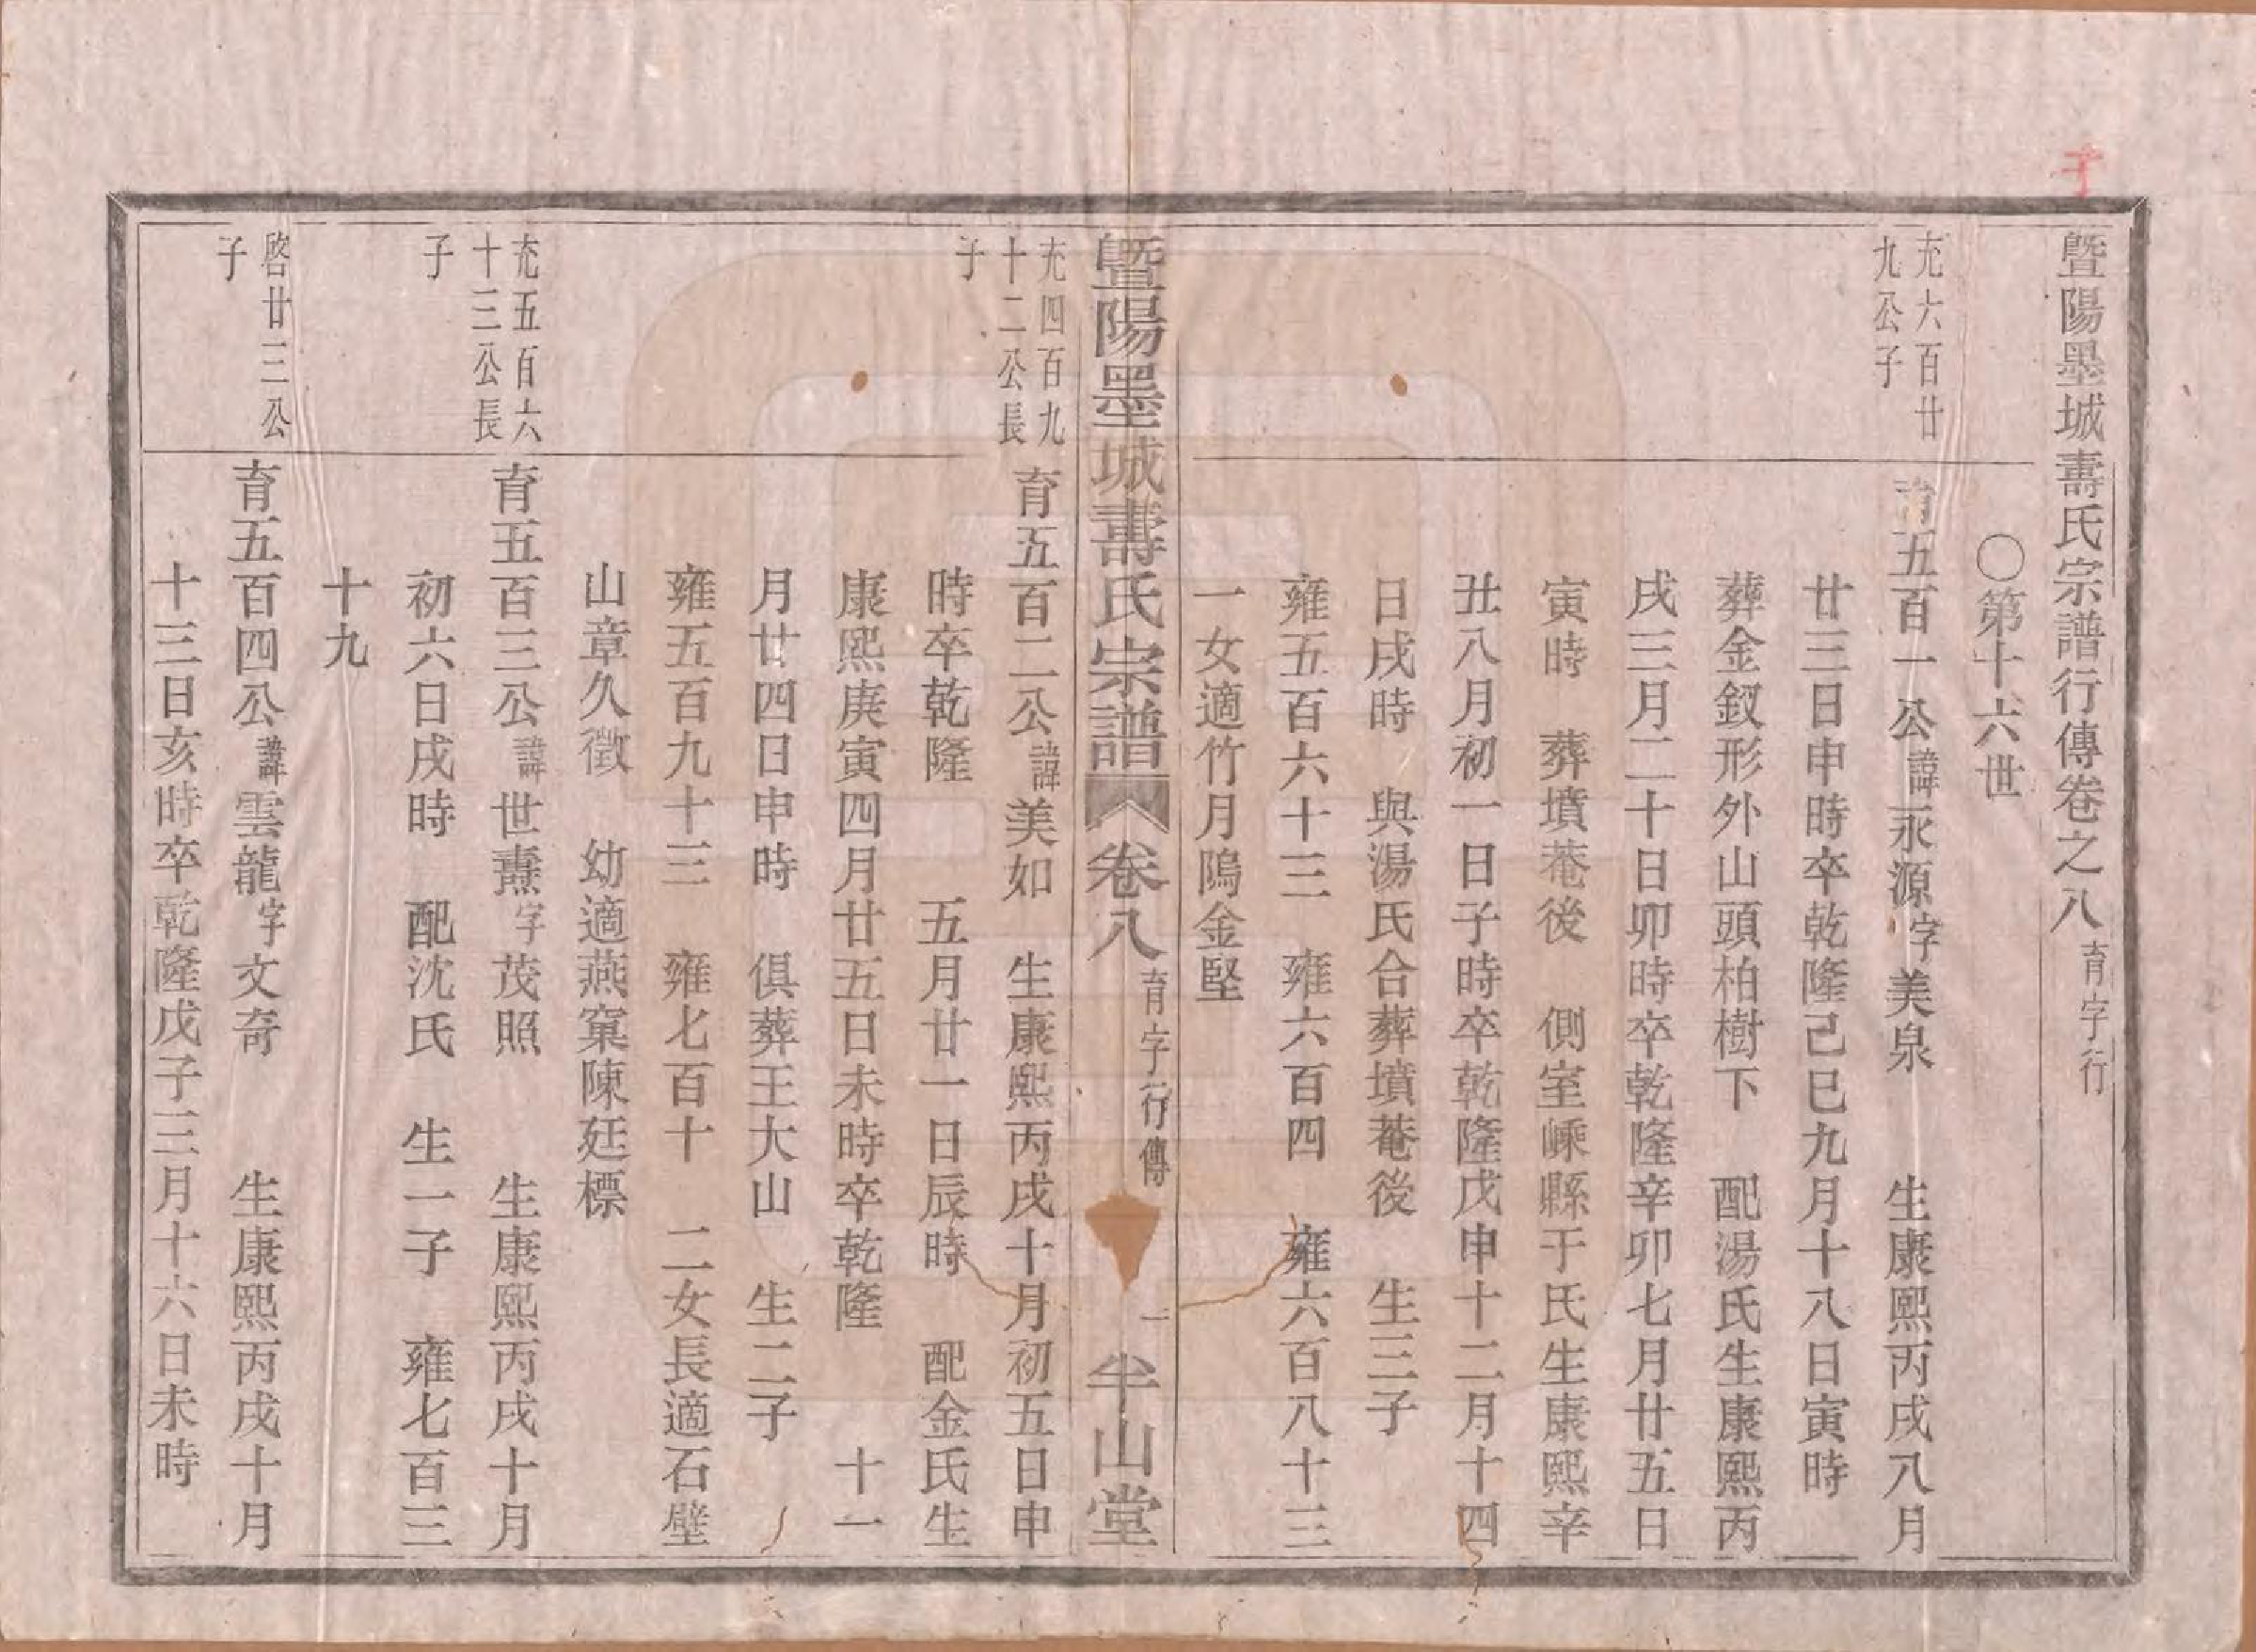 子
暨陽墨城壽氏宗譜行傳卷之八育字行
〇第十六世
充六百廿
九公子
育五百一公諱永源字美泉 生康熙丙戌八月
廿三日申時卒乾隆己巳九月十八日寅時
葬金釵形外山頭柏樹下 配湯氏生康熙丙
戌三月二十日卯時卒乾隆辛卯七月廿五日
寅時 葬墳菴後 側室嵊縣于氏生康熙辛
丑八月初一日子時卒乾隆戊申十二月十四
日戌時 與湯氏合葬墳菴後 生三子
雍五百六十三 雍六百四 雍六百八十三
一女適竹月隖金堅
暨陽墨城壽氏宗譜 卷八 育字行傳 一 半山堂
充四百九
十二公長
子
育五百二公諱美如 生康熙丙戌十月初五日申
時卒乾隆 五月廿一日辰時 配金氏生
康熙庚寅四月廿五日未時卒乾隆 十一
月廿四日申時 俱葬王大山 生二子
雍五百九十三 雍七百十 二女長適石壁
山章久徵 幼適燕窠陳廷標
充五百六
十三公長
子
育五百三公諱世燾字茂照 生康熙丙戌十月
初六日戌時 配沈氏 生一子 雍七百三
十九
啓廿三公
子
育五百四公諱雲龍字文奇 生康熙丙戌十月
十三日亥時卒乾隆戊子三月十六日未時